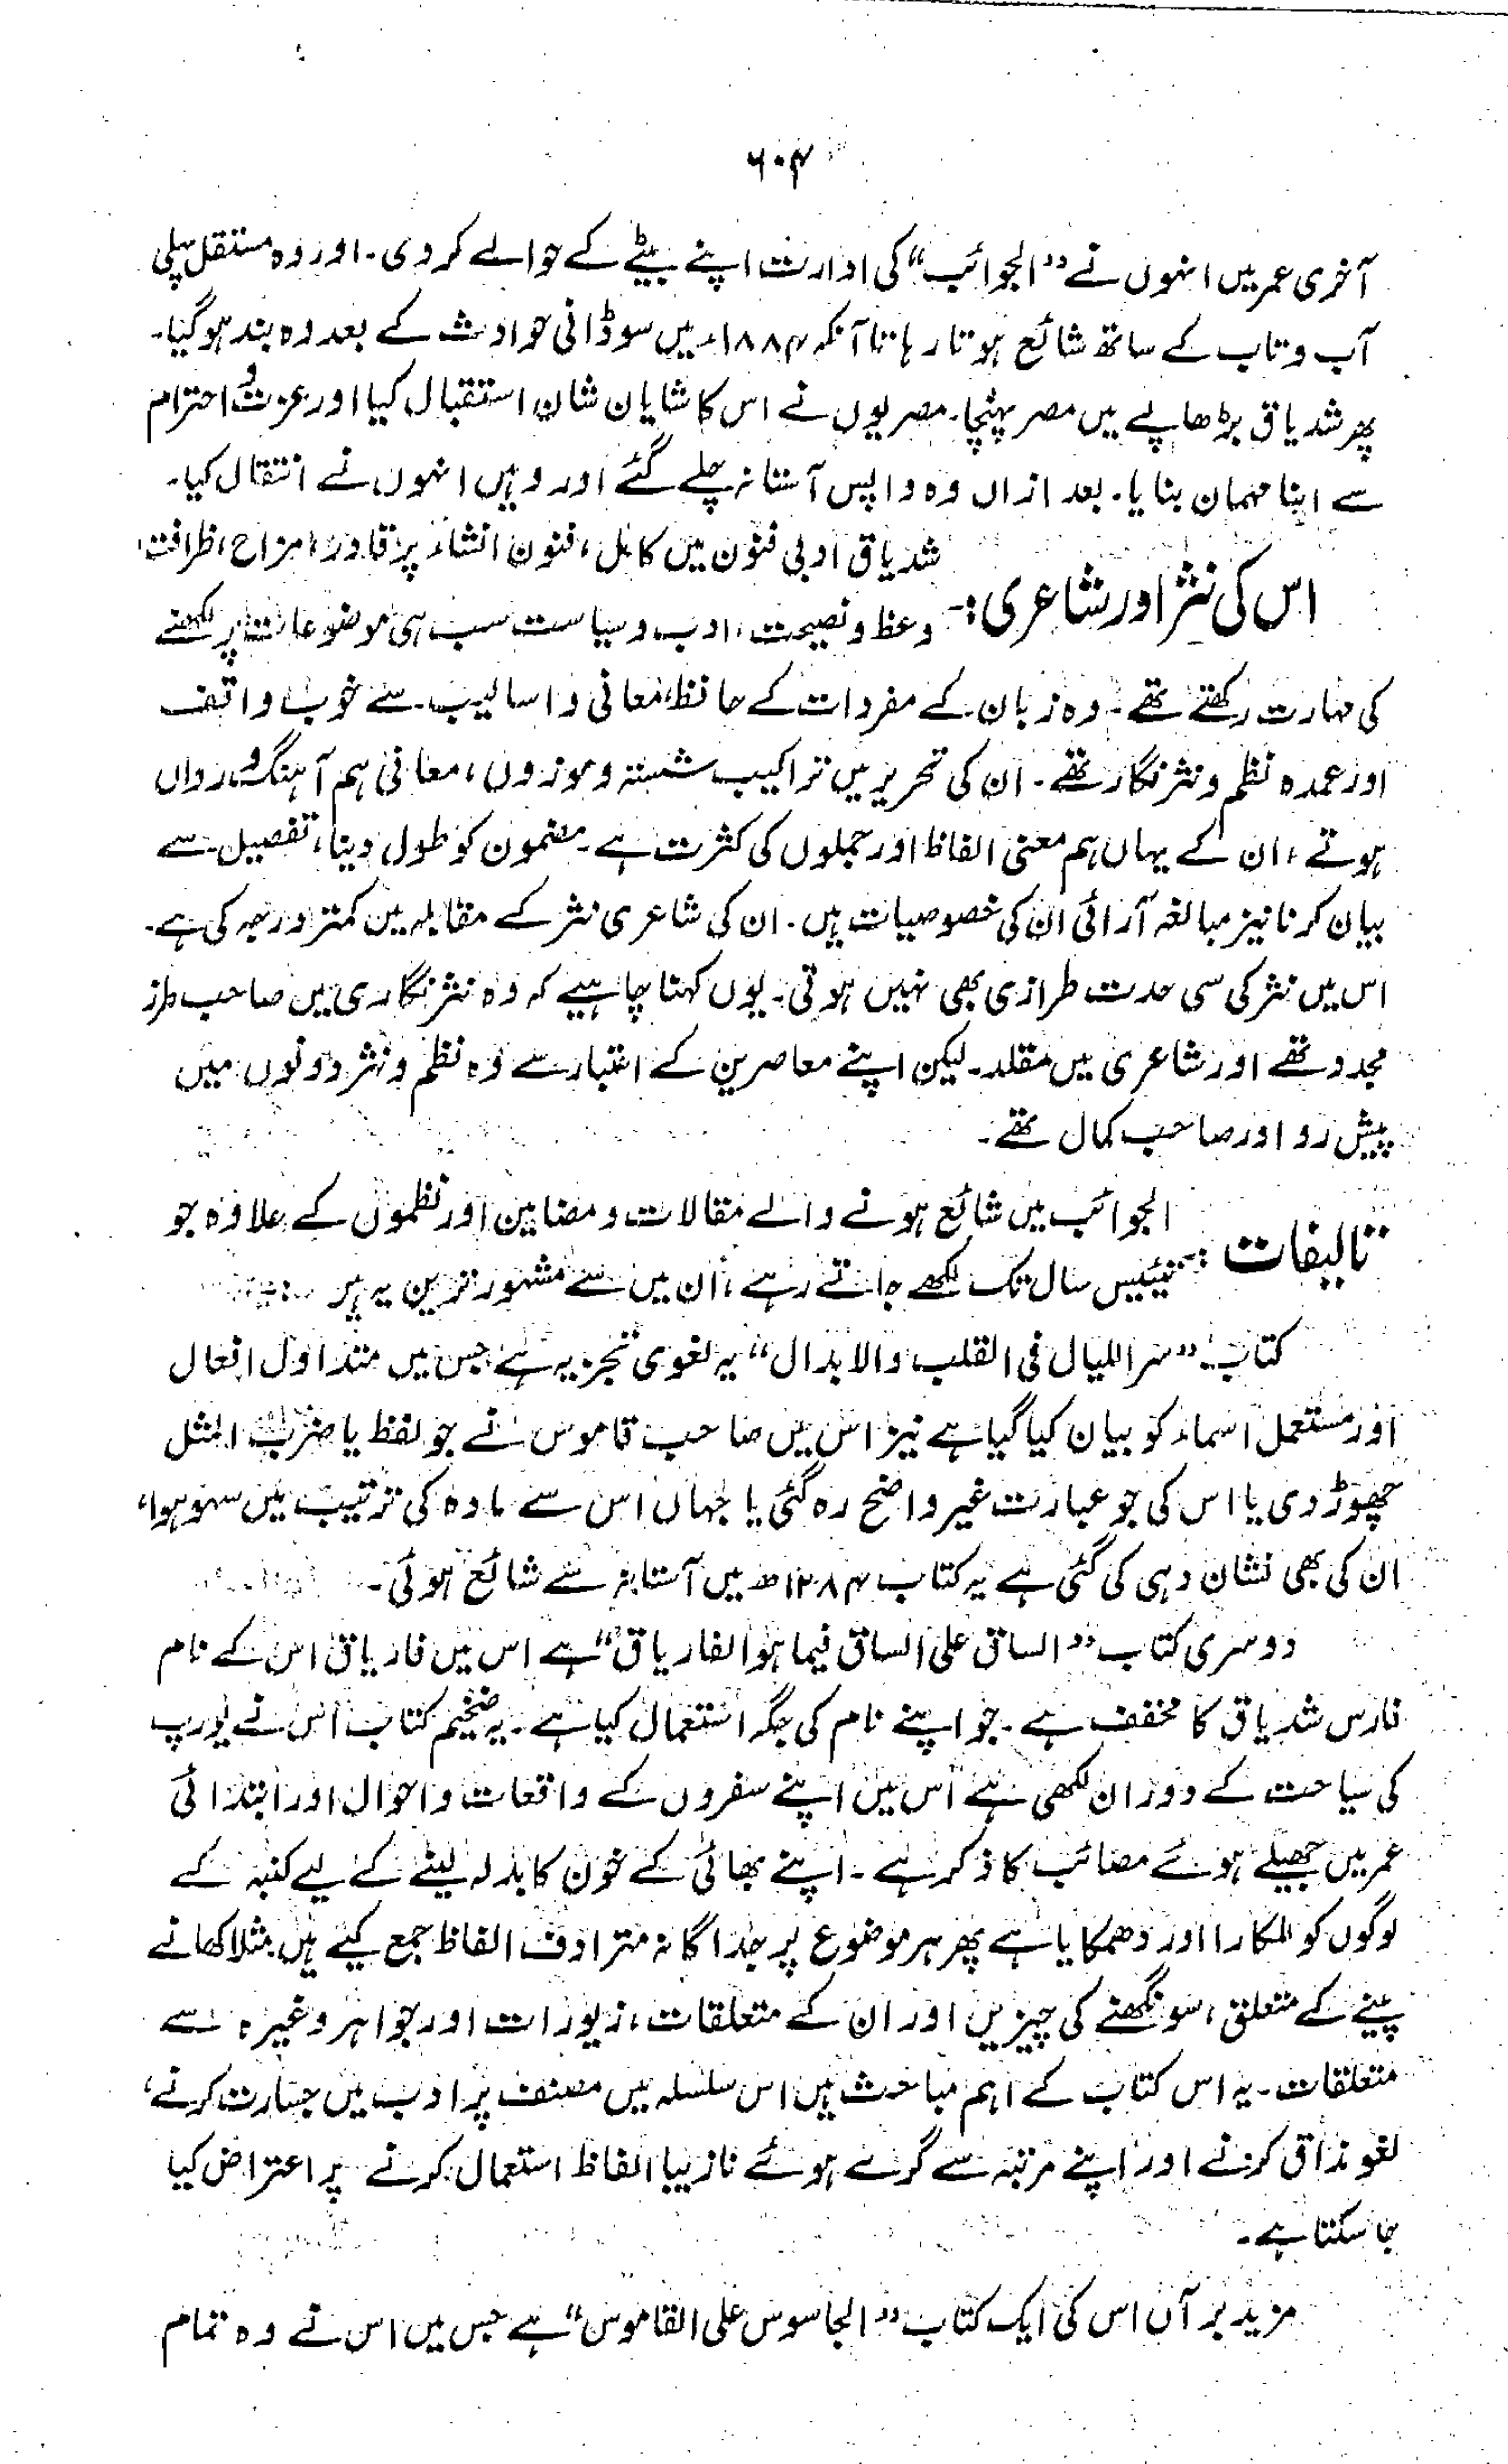 ۶۰۴
آخری عمر میں انہوں نے "الجوائب" کی ادارت اپنے بیٹے کے حوالے کر دی۔ اور وہ مستقل پہلی
آب و تاب کے ساتھ شائع ہوتا رہا تا آنکہ ۱۸۸۴ء میں سوڈانی حوادث کے بعد وہ بند ہو گیا۔
پھر شدیاق بڑھاپے میں مصر پہنچا۔ مصریوں نے اس کا شایان شان استقبال کیا اور عزت و احترام
سے اپنا مہمان بنایا۔ بعد ازاں وہ واپس آستانہ چلے گئے اور وہیں انہوں نے انتقال کیا۔
اس کی نثر اور شاعری :- شدیاق ادبی فنون میں کامل، فنون انشاء پر قادر، مزاح، ظرافت،
وعظ و نصیحت، ادب و سیاست سب ہی موضوعات پر لکھنے
کی مہارت رکھتے تھے۔ وہ زبان کے مفردات کے حافظ، معانی و اسالیب سے خوب واقف
اور عمدہ نظم و نثر نگار تھے۔ ان کی تحریر میں تراکیب شستہ و موزوں، معانی ہم آہنگ و رواں
ہوتے، ان کے یہاں ہم معنی الفاظ اور جملوں کی کثرت ہے۔ مضمون کو طول دینا، تفصیل سے
بیان کرنا نیز مبالغہ آرائی ان کی خصوصیات ہیں۔ ان کی شاعری نثر کے مقابلہ میں کمتر درجہ کی ہے۔
اس میں نثر کی سی جدت طرازی بھی نہیں ہوتی۔ یوں کہنا چاہیے کہ وہ نثر نگاری میں صاحب طرز
مجدد تھے اور شاعری میں مقلد۔ لیکن اپنے معاصرین کے اعتبار سے وہ نظم و نثر دونوں میں
پیش رو اور صاحب کمال تھے۔
تالیفات :- الجوائب میں شائع ہونے والے مقالات و مضامین اور نظموں کے علاوہ جو
تیئیس سال تک لکھے جاتے رہے، ان میں سے مشہور ترین یہ ہیں
کتاب "سر اللیال فی القلب والابدال" یہ لغوی تجزیہ ہے جس میں متداول افعال
اور مستعمل اسماء کو بیان کیا گیا ہے نیز اس میں صاحب قاموس نے جو لفظ یا ضرب المثل
چھوڑ دی یا اس کی جو عبارت غیر واضح رہ گئی یا جہاں اس سے مادہ کی ترتیب میں سہو ہوا،
ان کی بھی نشان دہی کی گئی ہے یہ کتاب ۱۲۸۴ھ میں آستانہ سے شائع ہوئی۔
دوسری کتاب "الساق علی الساق فیما ہوا الفاریاق" ہے اس میں فاریاق اس کے نام
فارس شدیاق کا مخفف ہے۔ جو اپنے نام کی جگہ استعمال کیا ہے۔ یہ ضخیم کتاب اس نے یورپ
کی سیاحت کے دوران لکھی ہے اس میں اپنے سفروں کے واقعات و احوال اور ابتدائی
عمر میں جھیلے ہوئے مصائب کا ذکر ہے۔ اپنے بھائی کے خون کا بدلہ لینے کے لیے کنبہ کے
لوگوں کو للکارا اور دھمکایا ہے پھر ہر موضوع پر جداگانہ مترادف الفاظ جمع کیے ہیں مثلا کھانے
پینے کے متعلق، سونگھنے کی چیزیں اور ان کے متعلقات، زیورات اور جواہر وغیرہ سے
متعلقات۔ یہ اس کتاب کے اہم مباحث ہیں اس سلسلہ میں مصنف پر ادب میں جسارت کرنے،
لغو مذاق کرنے اور اپنے مرتبہ سے گرے ہوئے نازیبا الفاظ استعمال کرنے پر اعتراض کیا
جا سکتا ہے۔
مزید بر آں اس کی ایک کتاب "الجاسوس علی القاموس" ہے جس میں اس نے وہ تمام